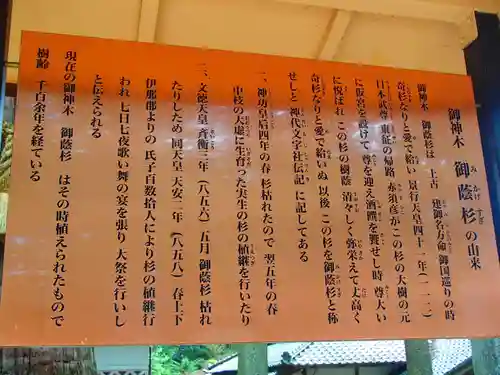 御神木 御蔭杉の由来
みかげすぎ
御神木 御蔭杉は 上古 建御名方命 御国巡りの時
奇杉なりと愛で給い 景行天皇四十一年(一一一)
日本武尊 東征の帰路 赤須彦がこの杉の大樹の元
に仮宮を設けて 尊を迎え酒饌を饗せし時 尊大い
に悦ばれ この杉の樹蔭 清々しく弥栄えて丈高く
奇杉なりと愛で給いぬ 以後 この杉を御蔭杉と称
せしと 神代文字社伝記に記してある
一、神功皇后四年の春 杉枯れたので 翌五年の春
中枝の穴虚に生育った実生の杉の植継を行いたり
二、文徳天皇 斉衡三年(八五六)五月 御蔭杉 枯れ
たりしため 同天皇 天安二年(八五八)春上下
伊那郡よりの 氏子百数拾人により杉の植継行
われ 七日七夜歌い舞の宴を張り 大祭を行いし
と伝えられる
現在の御神木 御蔭杉 はその時植えられたもので
樹齢 千百余年を経ている